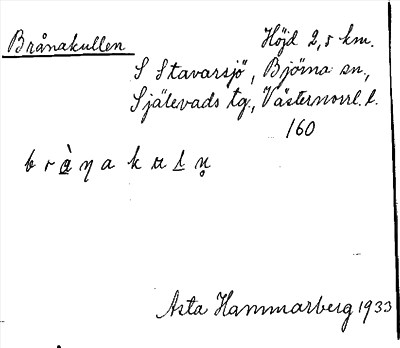 Brånakullen Höjd 2,5 km.
S Stavarsjö, Björna sn,
Själevads tg., Västernorrl. l.
160
b r å̀ ŋ a k u l n̥
Asta Hammarberg 1933